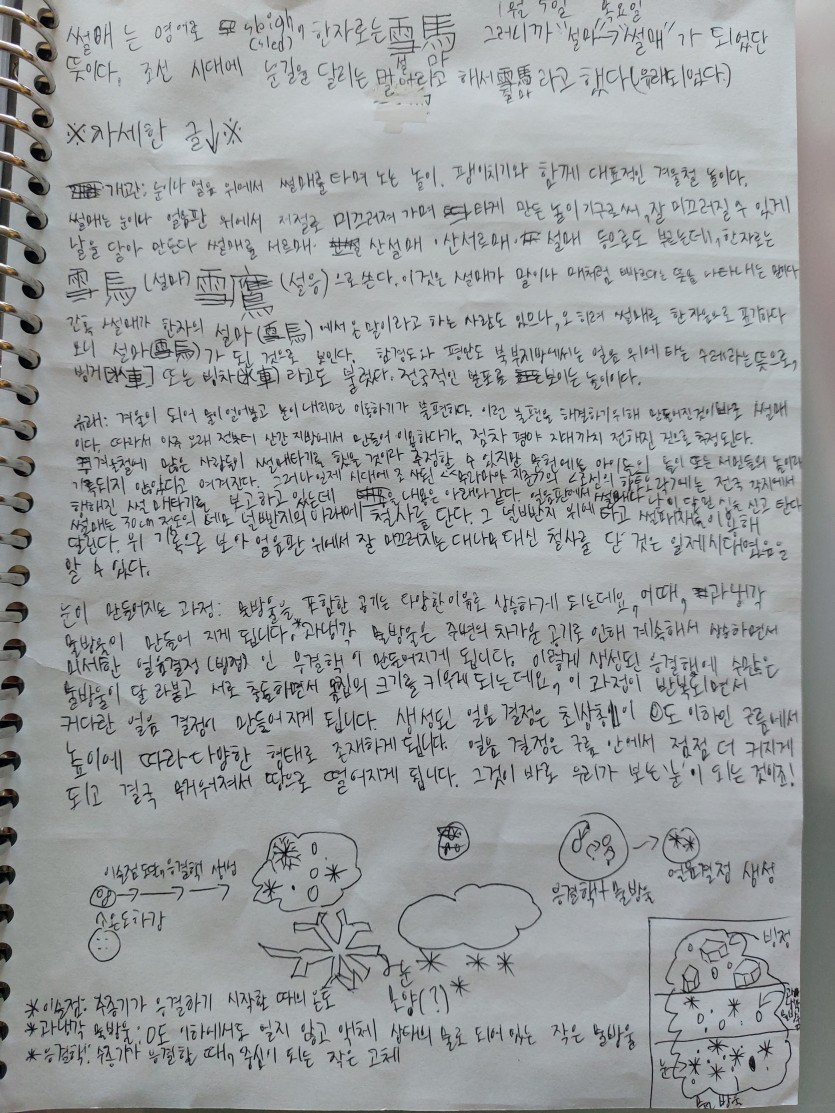 1월 9일 목요일
썰매는 영어로 sleigh, (sled) 한자로는 雪馬 설마 그러니까 "설마"→"썰매"가 되었단
뜻이다. 조선 시대에 눈길을 달리는 말이라고 해서 雪馬 설마 라고 했다(유래되었다.)
※자세한 글↓※
개관: 눈이나 얼음 위에서 썰매를 타며 노는 놀이. 팽이치기와 함께 대표적인 겨울철 놀이다.
썰매는 눈이나 얼음판 위에서 저절로 미끄러져 가며 타게 만든 놀이기구로써, 잘 미끄러질 수 있게
날을 달아 만든다 썰매를 서르매·산설매·산서르매· 설매 등으로도 부르는데, 한자로는
雪馬(설마) 雪鷹(설응)으로 쓴다. 이것은 썰매가 말이나 매처럼 빠르다는 뜻을 나타내는 말이다
간혹 썰매가 한자의 설마(雪馬)에서 온 말이라고 하는 사람도 있으나, 오히려 썰매를 한자음으로 표기하다
보니 설마(雪馬)가 된 것으로 보인다. 함경도와 평안도 북부지방에서는 얼음 위에 타는 수레라는 뜻으로,
빙거[氷車] 또는 빙차(氷車)라고도 불렀다. 전국적인 분포를 보이는 놀이이다.
유래: 겨울이 되어 물이 얼어붙고 눈이 내리면 이동하기가 불편하다. 이런 불편을 해결하기 위해 만들어진 것이 바로 썰매
이다. 따라서 아주 오래 전부터 산간 지방에서 만들어 이용하다가, 점차 평야 지대까지 전해진 것으로 추정된다.
겨울철에 많은 사람들이 썰매타기를 했을 것이라 추정할 수 있지만 문헌에는 아이들의 놀이 또는 서민들의 놀이라
기록되지 않았다고 여겨진다. 그러나 일제 시대에 조사된 <조선의 향토오락>에는 전국 각지에서
행해진 썰매타기를 보고하고 있는데 내용은 아래와 같다. 얼음판에서 썰매나 날이 달린 신을 신고 탄다
썰매는 30cm 정도의 네모 널반지의 아래에 철사를 단다. 그 널반지 위에 타고 썰매채를 이용해
달린다. 위 기록으로 보아 얼음판 위에서 잘 미끄러지는 대나무 대신 철사를 단 것은 일제시대였음을
알 수 있다.
눈이 만들어지는 과정: 물방울을 포함한 공기는 다양한 이유로 상승하게 되는데요, 이때, 과냉각
물방울이 만들어 지게 됩니다. *과냉각 물방울은 주변의 차가운 공기로 인해 계속해서 상승하면서
미세한 얼음결정(빙정)인 응결핵이 만들어지게 됩니다. 이렇게 생성된 응결핵에 수많은
물방울이 달라붙고 서로 충돌하면서 몸집의 크기를 키우게 되는데요, 이 과정이 반복되면서
커다란 얼음 결정이 만들어지게 됩니다. 생성된 얼음 결정은 최상층이 0도 이하인 구름에서
높이에 따라 다양한 형태로 존재하게 됩니다. 얼음 결정은 구름 안에서 점점 더 커지게
되고 결국 무거워져서 땅으로 떨어지게 됩니다. 그것이 바로 우리가 보는 '눈'이 되는 것이죠!
이슬점 도달, 응결핵 생성
온도하강
응결핵+물방울
얼음결정 생성
눈
모양(?)
빙정
과냉각 물방울
눈
*이슬점: 수증기가 응결하기 시작할 때의 온도
*과냉각 물방울: 0도 이하에서도 얼지 않고 액체 상태의 물로 되어 있는 작은 물방울
*응결핵: 수증기가 응결할 때, 중심이 되는 작은 고체